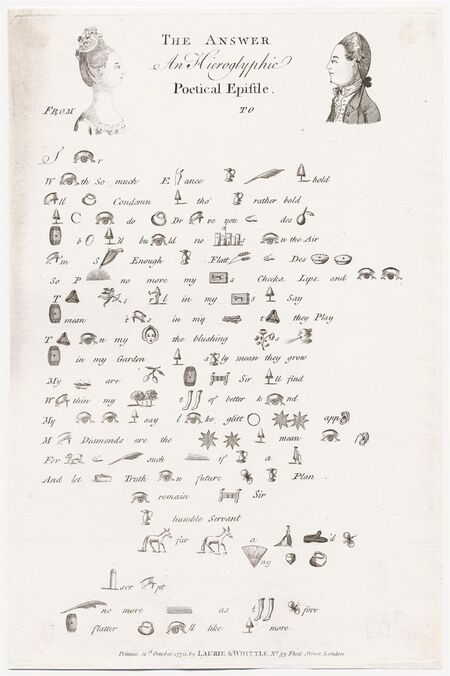 THE ANSWER
An Hieroglyphic
Poetical Epistle.
FROM TO
S r
W th So much E ance hold
ll Condemn tho' rather bold
C do Dr ve you des
b ll bu ld no s n the Air
m S Enough Flatt Des
So P no more my s Cheeks, Lips, and
T s l in my s Say
mean t s in my t they Play
T n my the blushing s
in my Garden s ly mean they grow
My are Sir ll find
W thin my t of better k nd
My say l ke glitt app
M Diamonds are the mean
For such if a
And let Truth n future Plan
remain Sir
humble Servant
far a 'd
ny
scr pt
no more as t fore
flatter ll like more.
Printed October by LAURIE & WHITTLE, No. 53 Fleet Street, London.